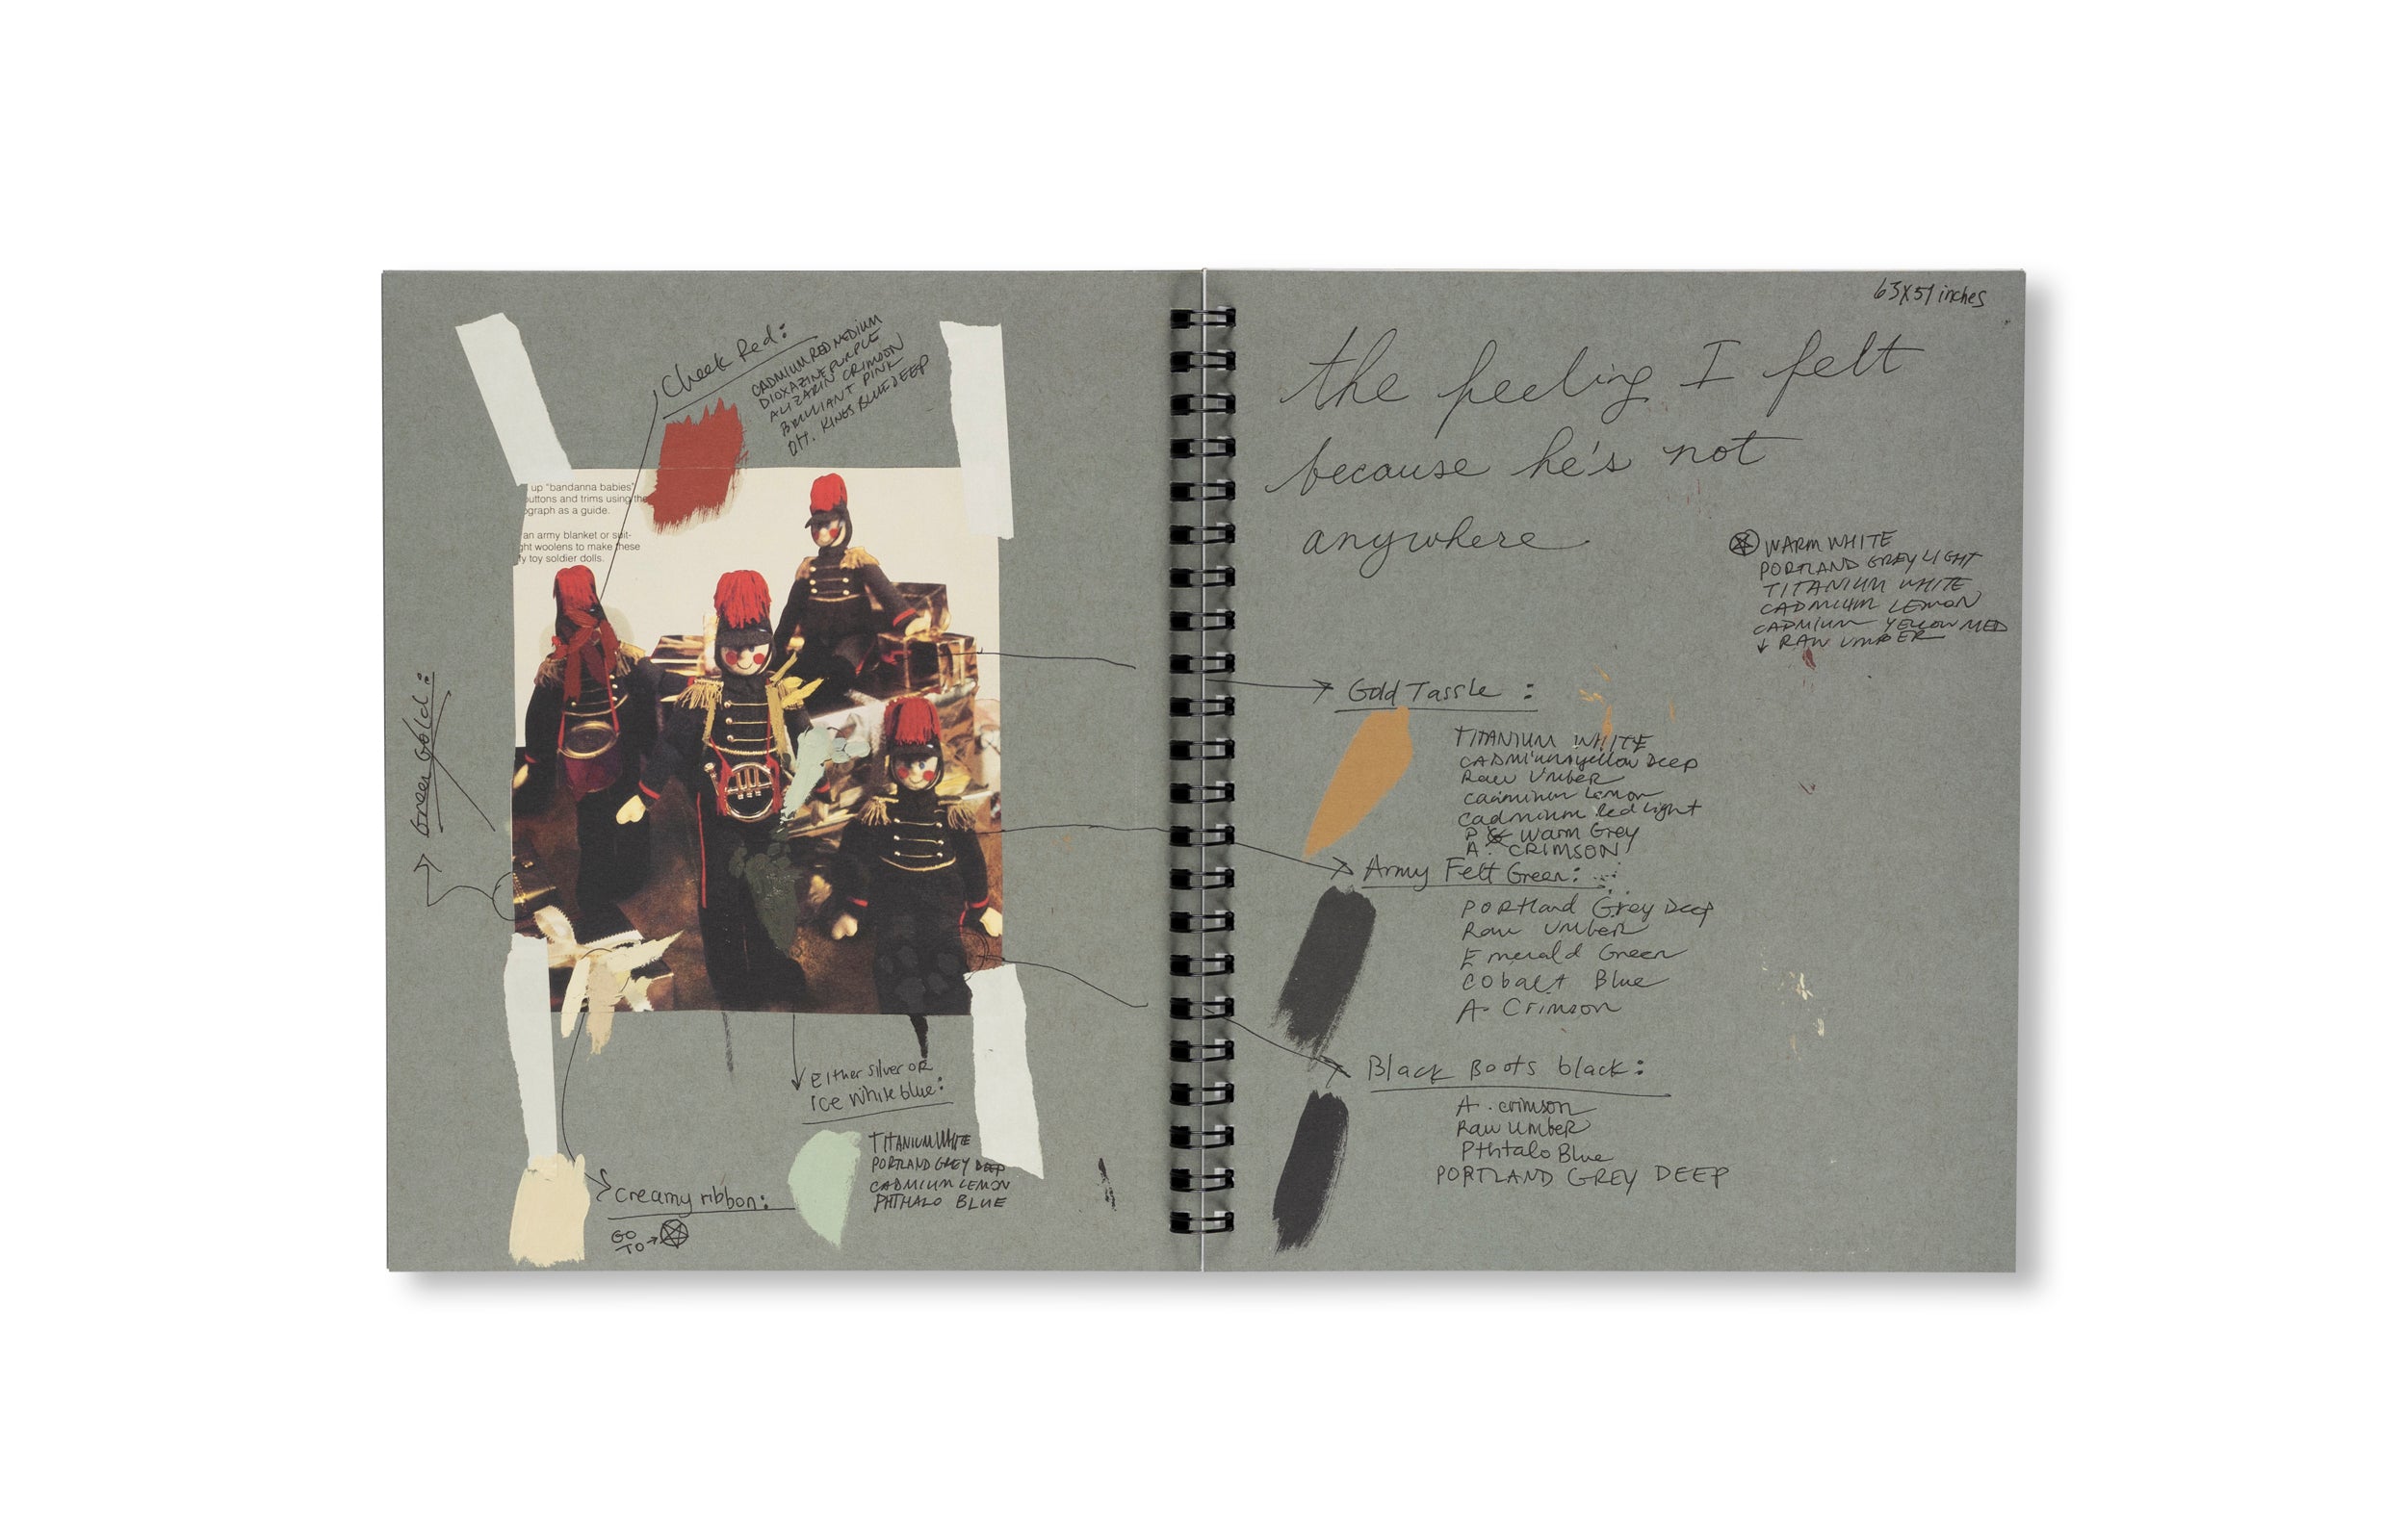 Cheek Red:
CADMIUM RED MEDIUM
DIOXAZINE PURPLE
ALIZARIN CRIMSON
BRILLIANT PINK
OH. KINGS BLUE DEEP
up "bandanna babies"
uttons and trims using the
ograph as a guide.
an army blanket or suit-
ght woolens to make these
ly toy soldier dolls.
Green Gold:
Either silver OR
ice white blue:
TITANIUM WHITE
PORTLAND GREY DEEP
CADMIUM LEMON
PHTHALO BLUE
Creamy ribbon:
GO
TO
63X51 inches
the feeling I felt
because he's not
anywhere
WARM WHITE
PORTLAND GREY LIGHT
TITANIUM WHITE
CADMIUM LEMON
CADMIUM YELLOW MED
RAW UMBER
Gold Tassle :
TITANIUM WHITE
CADMiumyellow Deep
Raw Umber
Cadminum Lemon
Cadmnium Red Light
P Warm Grey
A. CRIMSON
Army Felt Green:
Portland Grey Deep
Raw Umber
Emerald Green
Cobalt Blue
A. Crimson
Black Boots black:
A. crimson
Raw Umber
Pthtalo Blue
PORTLAND GREY DEEP